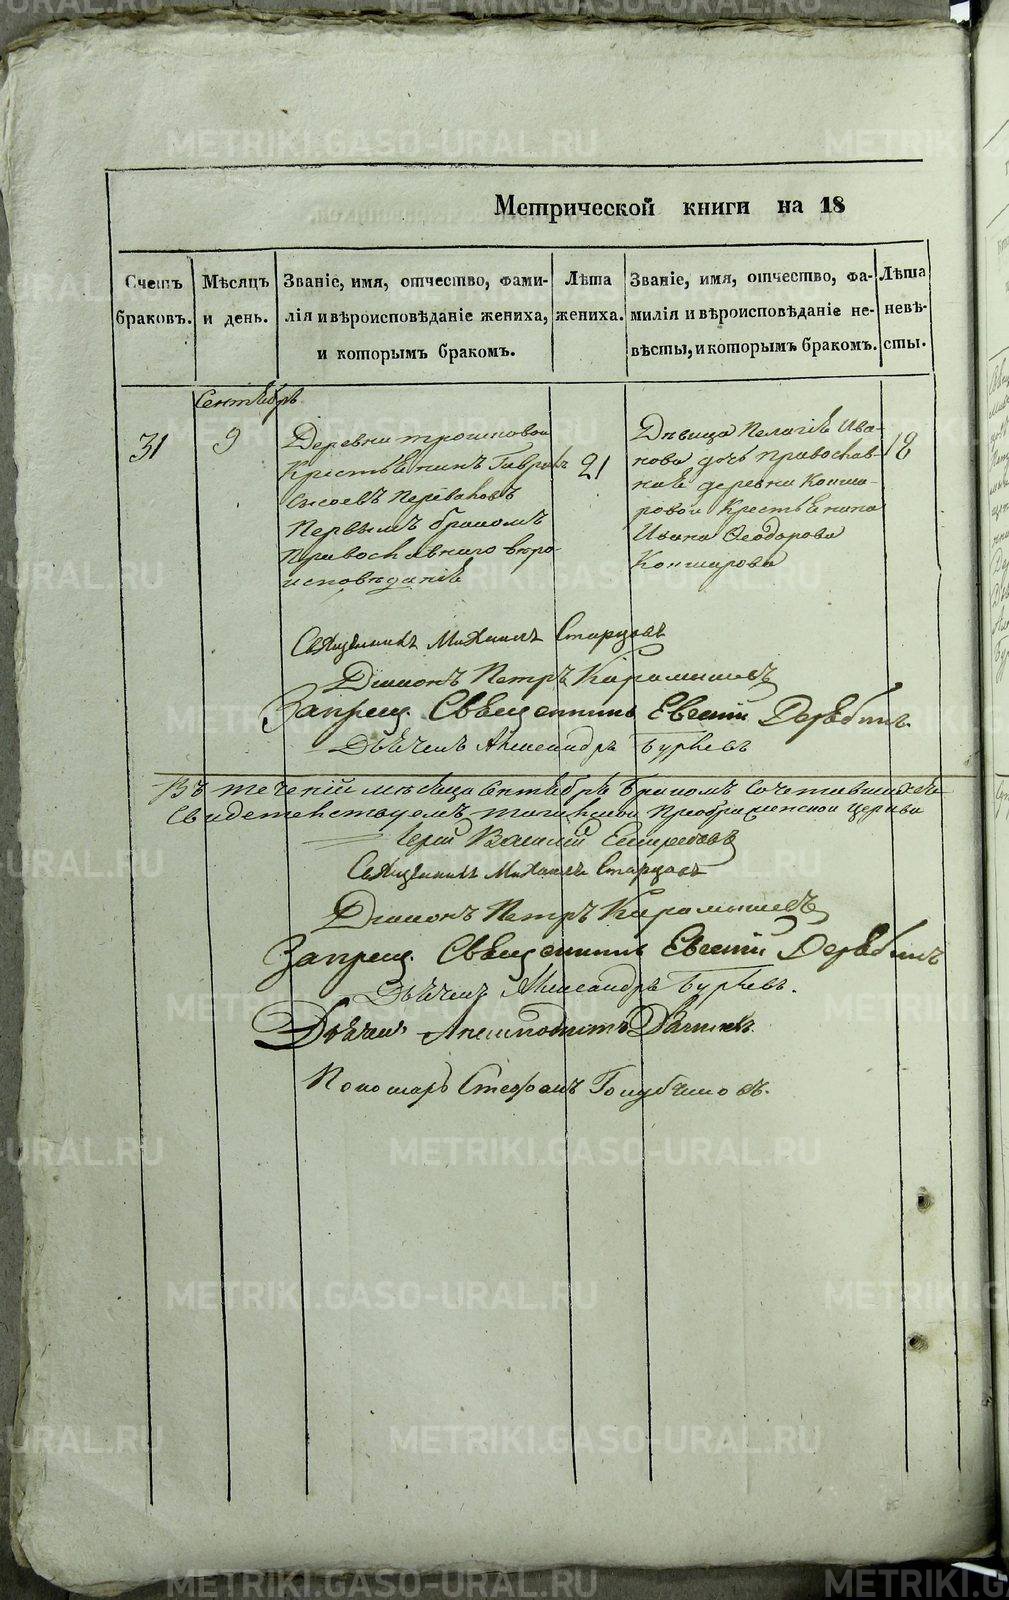 METRIKI.GASO-URAL.RU
Метрической книги на 18
Счетъ браковъ.
Мѣсяцъ и день.
Званіе, имя, отчество, фами-
лія и вѣроисповѣданіе жениха,
и которымъ бракомъ.
Лѣта
жениха.
Званіе, имя, отчество, фа-
милія и вѣроисповѣданіе не-
вѣсты, и которымъ бракомъ.
Лѣта
невѣ-
сты.
Сентябрь
31
9
Деревни
Крестьянинъ Гаврилъ
Сысоевъ Переваловъ
Первымъ бракомъ
Православнаго вѣро-
исповѣданія
21
Дѣвица Пелагія Ива-
нова дочь православ-
ная деревни Конша-
ровой Крестьянина
Ивана Ѳеодорова
Коншарова
18
Священникъ Михаилъ Старцовъ
Діаконъ Петръ Карамышевъ
Запрещ. Священникъ Евгеній Дерябинъ
Дьячекъ Александръ
Въ теченіи мѣсяца Сентября Бракомъ Сочетавшихся
Свидетельствуемъ Преображенской Церкви
Іерей Василій
Священникъ Михаилъ Старцовъ
Діаконъ Петръ Карамышевъ
Запрещ. Священникъ Евгеній Дерябинъ
Дьячекъ Александръ
Дьячекъ
Пономарь Стефанъ Голубчиковъ.